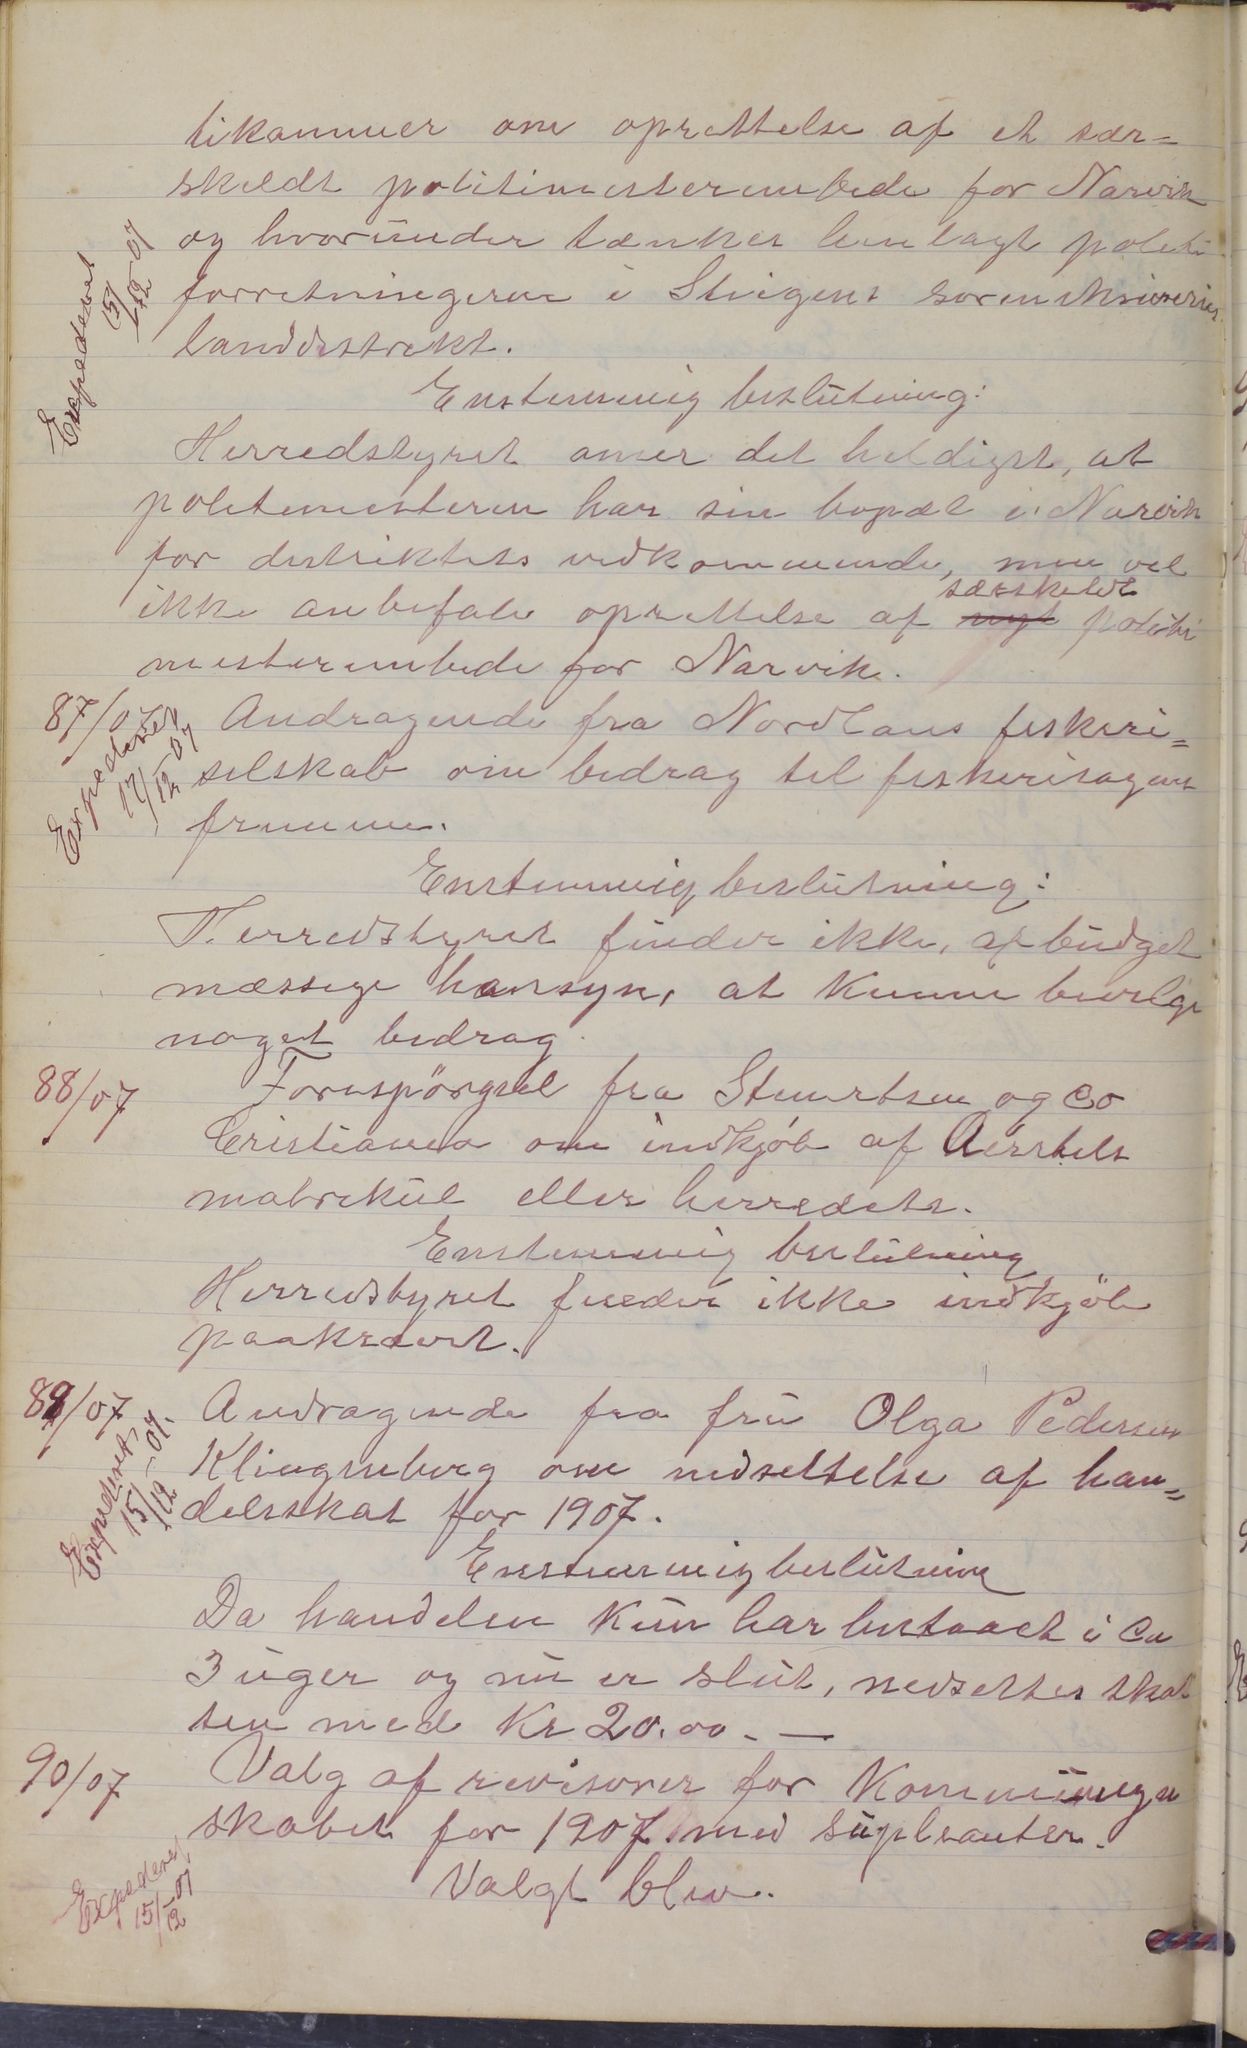 tikammer om oprettelse af et sær=
skeldt politimesterembede for Narvik
og hvorunder tænkes henlagt politi
forretningerne i Steigens sorenskriveries
landdistrikt.
Expederet 15/12-07
Enstemmig beslutning:
Herredstyret anser det heldigst, at
politimesteren har sin bopæl i Narvik
for distriktets vedkommende, men vel
ikke anbefale oprettelse af nyt særskeldt politi
mesterembede for Narvik.
87/07 Andragende fra Nordlans fiskeri=
selskab om bedrag til fiskerisagens
fremme.
Expederet 17/12-07
Enstemmig beslutning:
Herredstyret finder ikke, af budget
mæssige hænsyn, at kunne bevilge
noget bedrag.
88/07 Forespörgsel fra Steuertsen og Co
Cristiania om indkjöb af
matrekul eller herredets.
Enstemmig beslutning
Herredstyret finder ikke indkjöb
paakrævet.
89/07 Andragende fra fru Olga Pedersen
Klingenberg om nedsettelse af han=
delsskat for 1907.
Expederet, 15/12-07.
Enstemmig beslutning
Da handelen kun har bestaaet i ca
3 uger og nu er slut, nedsettes skat
ten med Kr 20.00. —
90/07 Valg af revisorer for kommuneregn
skabet for 1907 med supleanter.
Expederet, 15/12-07
Valgt blev.